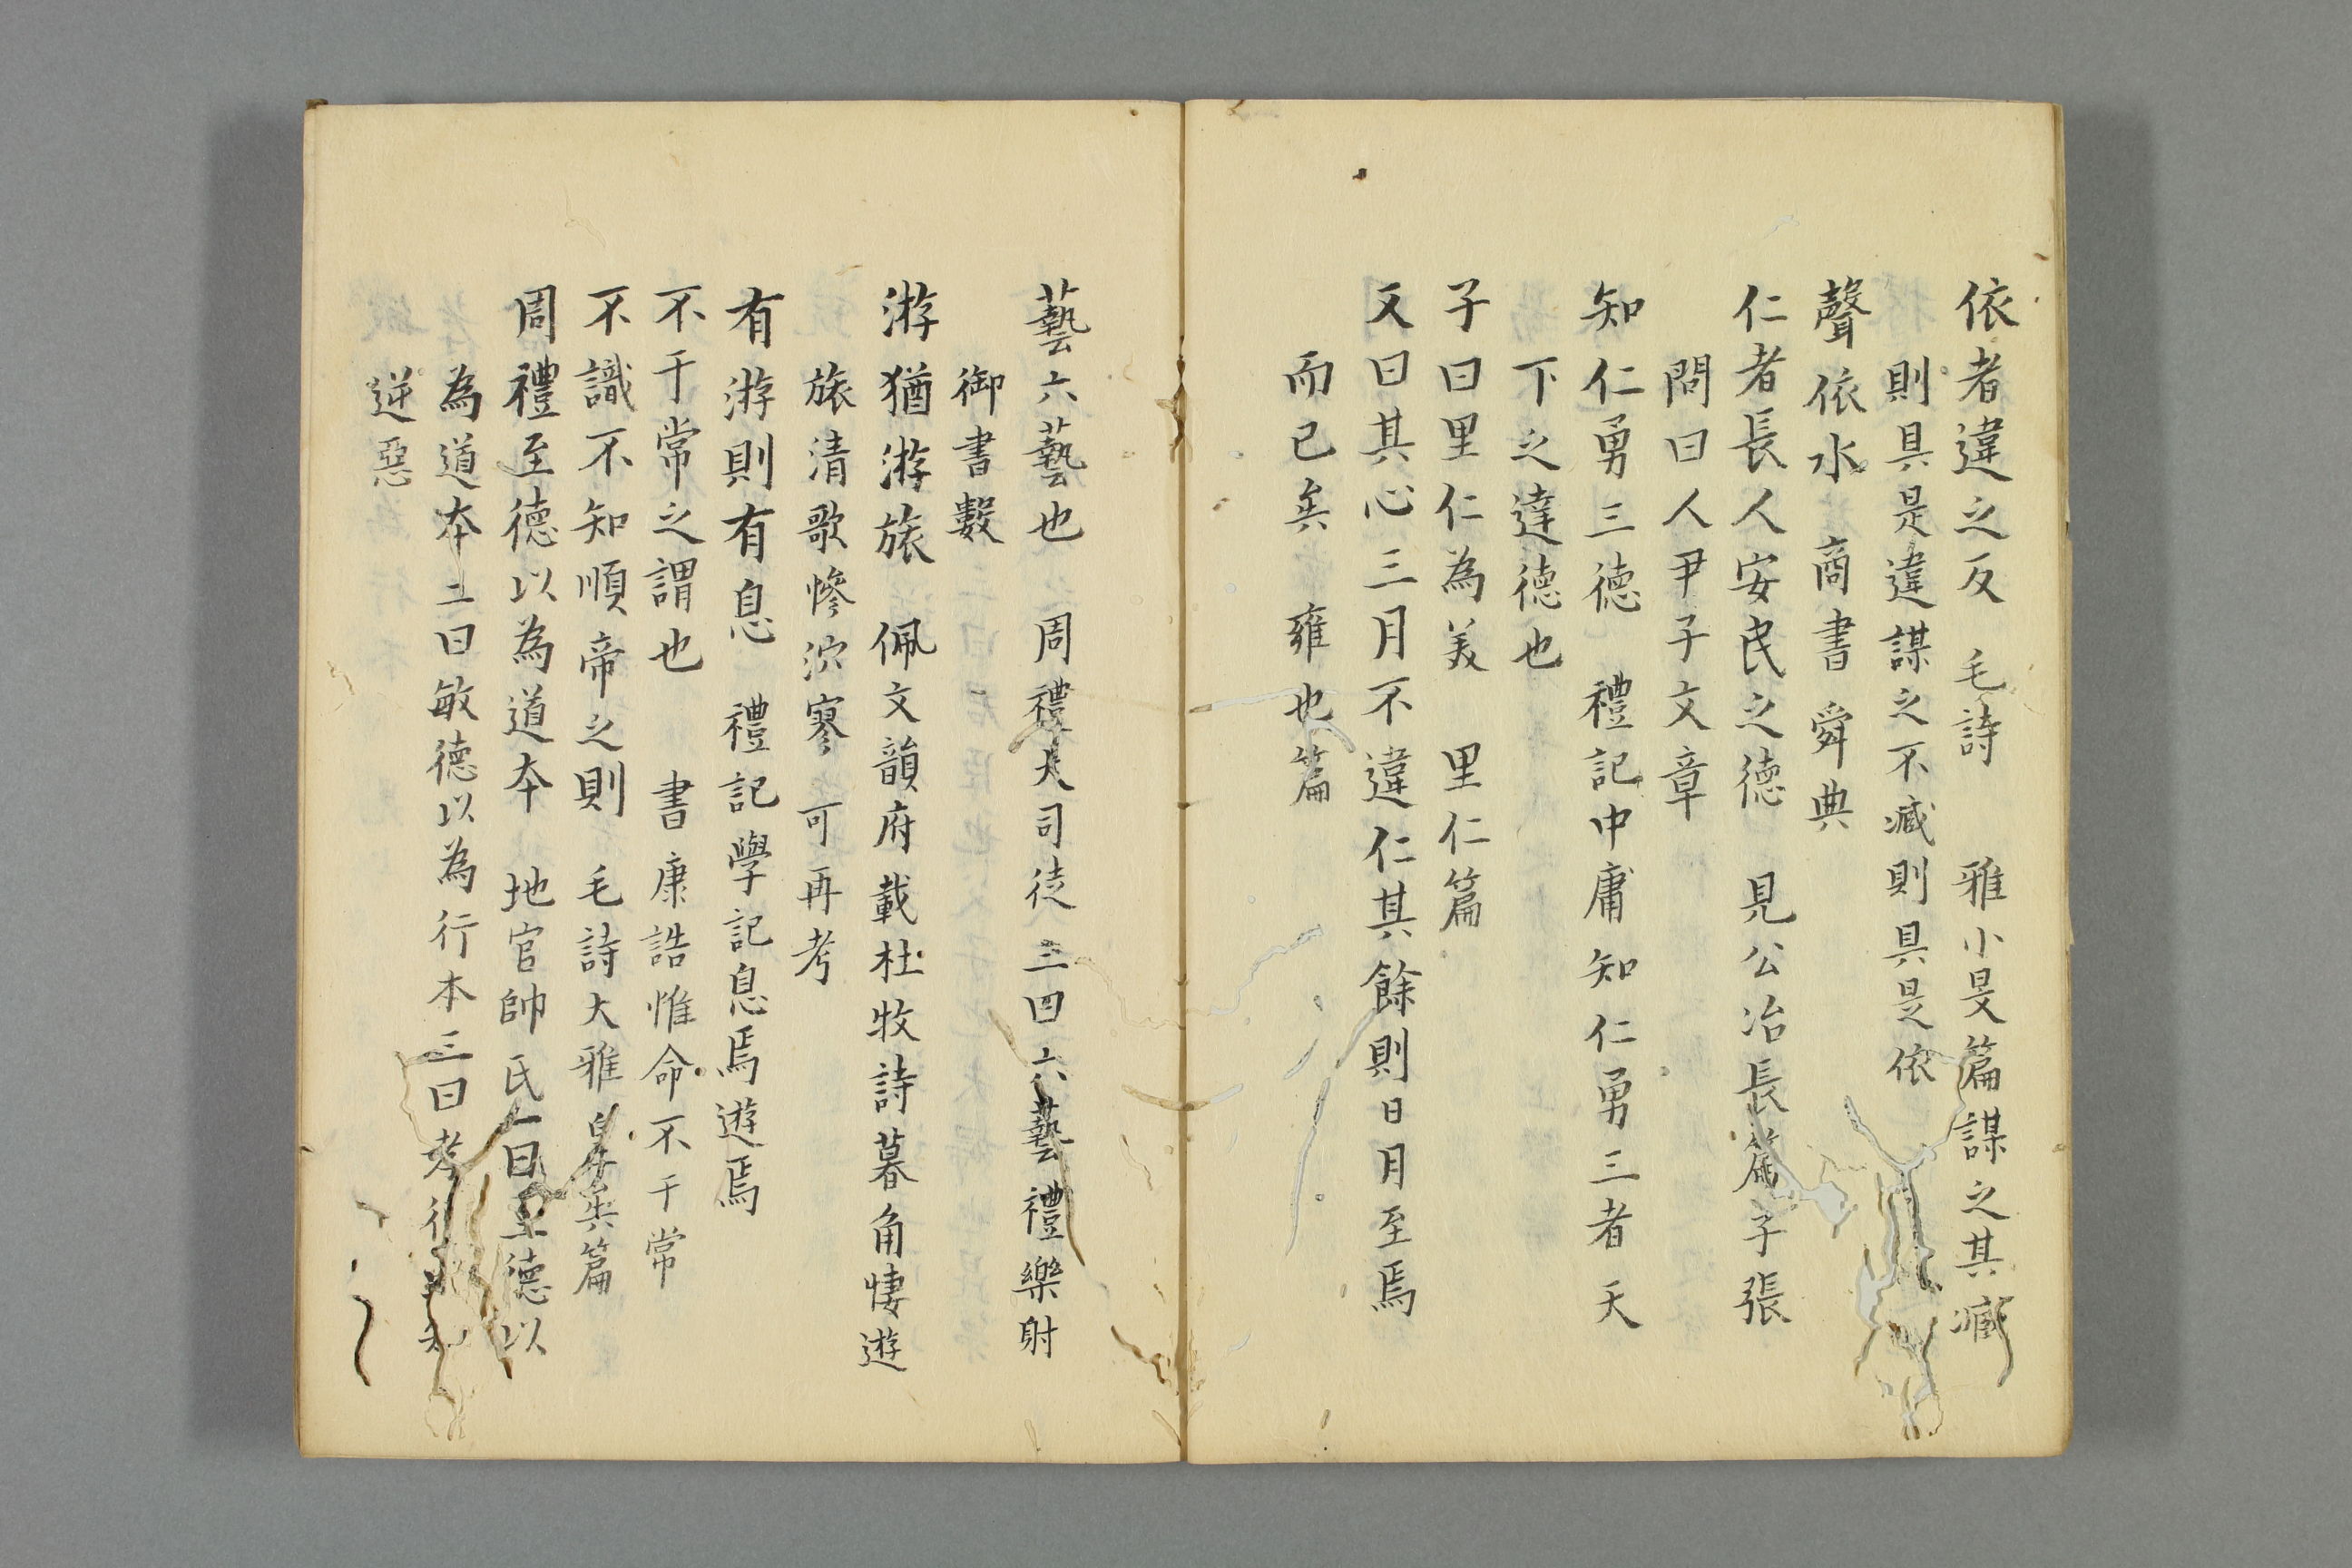 依者違之反　毛詩　雅小旻篇謀之其臧
則具是違謀之不臧則具是依
聲依水　商書舜典
仁者長人安民之德　見公冶長篇子張
問曰人尹子文章
知仁勇三德　禮記中庸知仁勇三者天
下之達德也
子曰里仁為美　里仁篇
又曰其心三月不違仁其餘則日月至焉
而已矣　雍也篇
藝六藝也　周禮大司徒三四六藝禮樂射
御書數
游猶游旅　佩文韻府載杜牧詩暮角悽遊
旅清歌慘泬寥　可再考
有游則有息　禮記學記息焉遊焉
不干常之謂也　書康誥惟命不干常
不識不知順帝之則　毛詩大雅皇矣篇
周禮至德以為道本　地官帥氏一曰至德以
為道本二曰敏德以為行本三曰孝
逆惡